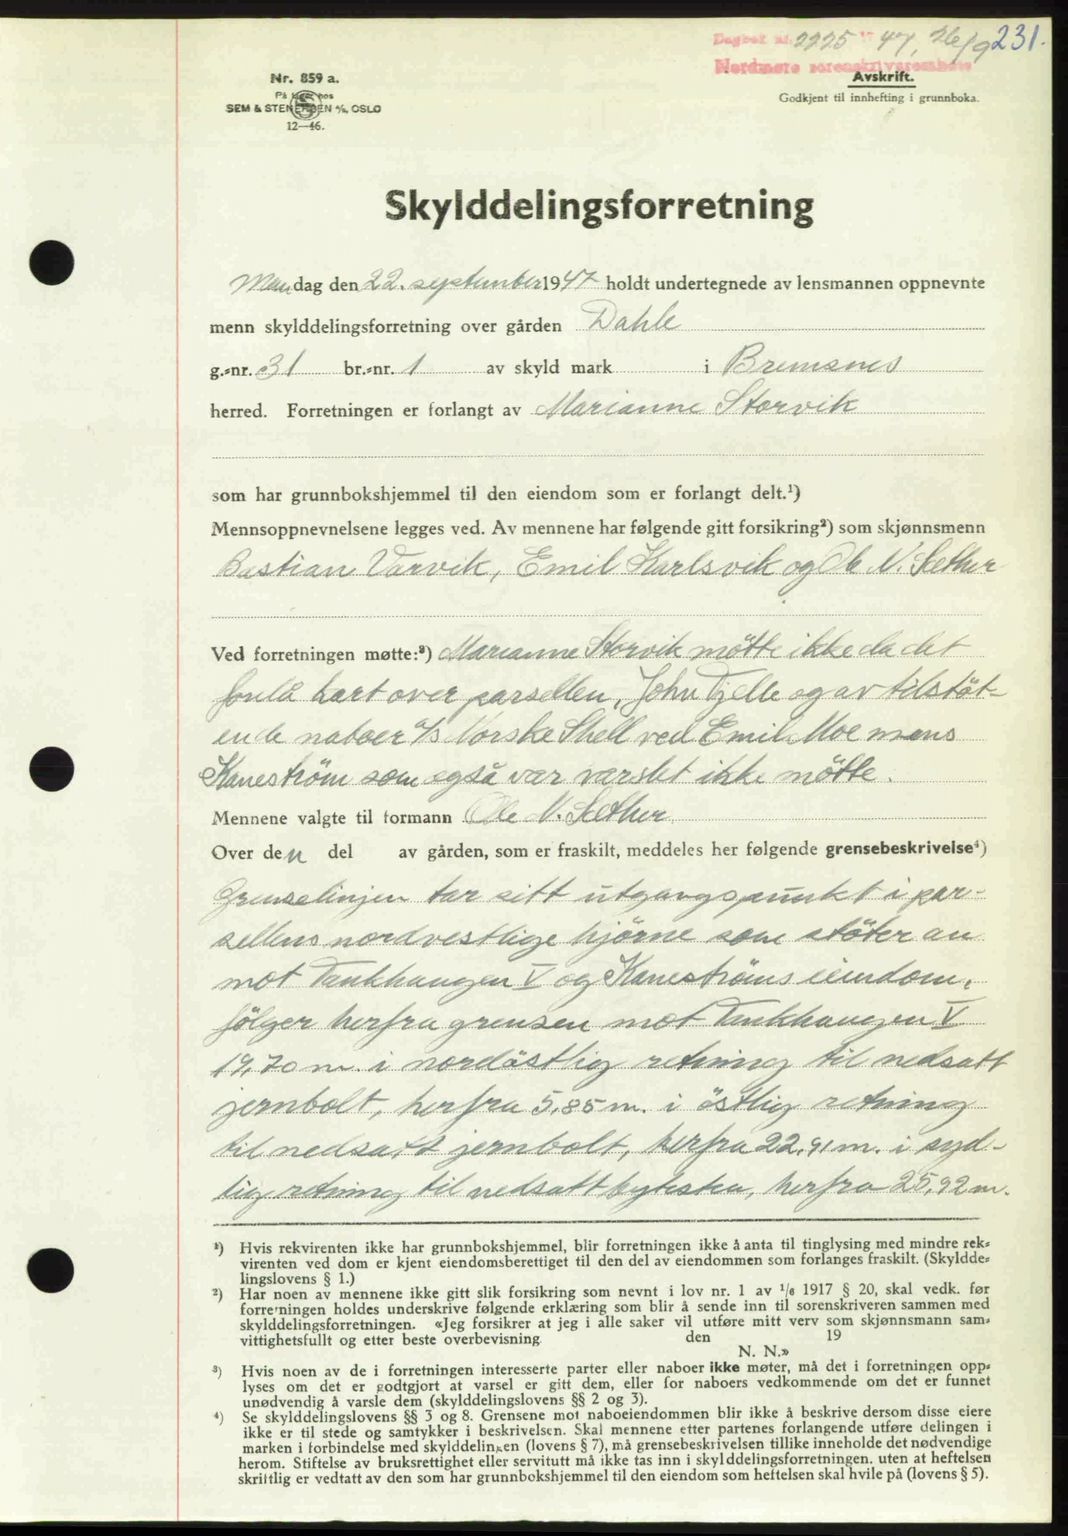 Dagbok nr. 2225 1947, 26/9 231.
Nordmøre sorenskriverembete
Avskrift.
Godkjent til innhefting i grunnboka.
Nr. 859 a.
På lager hos
SEM & STENERSEN A/S, OSLO
12—46.
Skylddelingsforretning
Mandag den 22. september 1947 holdt undertegnede av lensmannen oppnevnte
menn skylddelingsforretning over gården Dahle
g.-nr. 31 br.-nr. 1 av skyld mark i Bremsnes
herred. Forretningen er forlangt av Marianne Storvik
som har grunnbokshjemmel til den eiendom som er forlangt delt.¹)
Mennsoppnevnelsene legges ved. Av mennene har følgende gitt forsikring²) som skjønnsmenn
Bastian Varvik, Emil Karlsvik og Ole N. Sæther
Ved forretningen møtte:³) Marianne Storvik møtte ikke da det
forelå kart over parsellen, John Fjelle og av tilstøt-
ende naboer A/S Norske Shell ved Emil Moe mens
Kanestrøm som også var varslet ikke møtte.
Mennene valgte til formann Ole N. Sæther
Over den del av gården, som er fraskilt, meddeles her følgende grensebeskrivelse⁴)
Grenselinjen tar sitt utgangspunkt i par-
sellens nordvestlige hjørne som støter an
mot Tankhaugen V og Kanestrøms eiendom,
følger herfra grensen mot Tankhaugen V
19,70 m. i nordöstlig retning til nedsatt
jernbolt, herfra 5,85 m. i östlig retning
til nedsatt jernbolt, herfra 22,91 m. i syd-
lig retning til nedsatt bytesten, herfra 25,92 m.
¹) Hvis rekvirenten ikke har grunnbokshjemmel, blir forretningen ikke å anta til tinglysing med mindre rek-
virenten ved dom er kjent eiendomsberettiget til den del av eiendommen som forlanges fraskilt. (Skyldde-
lingslovens § 1.)
²) Har noen av mennene ikke gitt slik forsikring som nevnt i lov nr. 1 av 1/6 1917 § 20, skal vedk. før
forretningen holdes underskrive følgende erklæring som blir å sende inn til sorenskriveren sammen med
skylddelingsforretningen. «Jeg forsikrer at jeg i alle saker vil utføre mitt verv som skjønnsmann sam-
vittighetsfullt og etter beste overbevisning den 19
N. N.»
³) Hvis noen av de i forretningen interesserte parter eller naboer ikke møter, må det i forretningen opp-
lyses om det er godtgjort at varsel er gitt dem, eller for naboers vedkommende om det er funnet
unødvendig å varsle dem (skylddelingslovens §§ 2 og 3).
⁴) Se skylddelingslovens §§ 3 og 8. Grensene mot naboeiendommen blir ikke å beskrive dersom disse eiere
ikke er til stede og samtykker i beskrivelsen. Skal mennene etter partenes forlangende utføre delingen i
marken i forbindelse med skylddelingen (lovens § 7), må grensebeskrivelsen tillike inneholde det nødvendige
herom. Stiftelse av bruksrettighet eller servitutt må ikke tas inn i skylddelingsforretningen. uten at heftelsen
skriftlig er vedtatt av den som har grunnbokshjemmel til den eiendom som heftelsen skal hvile på (lovens § 5).